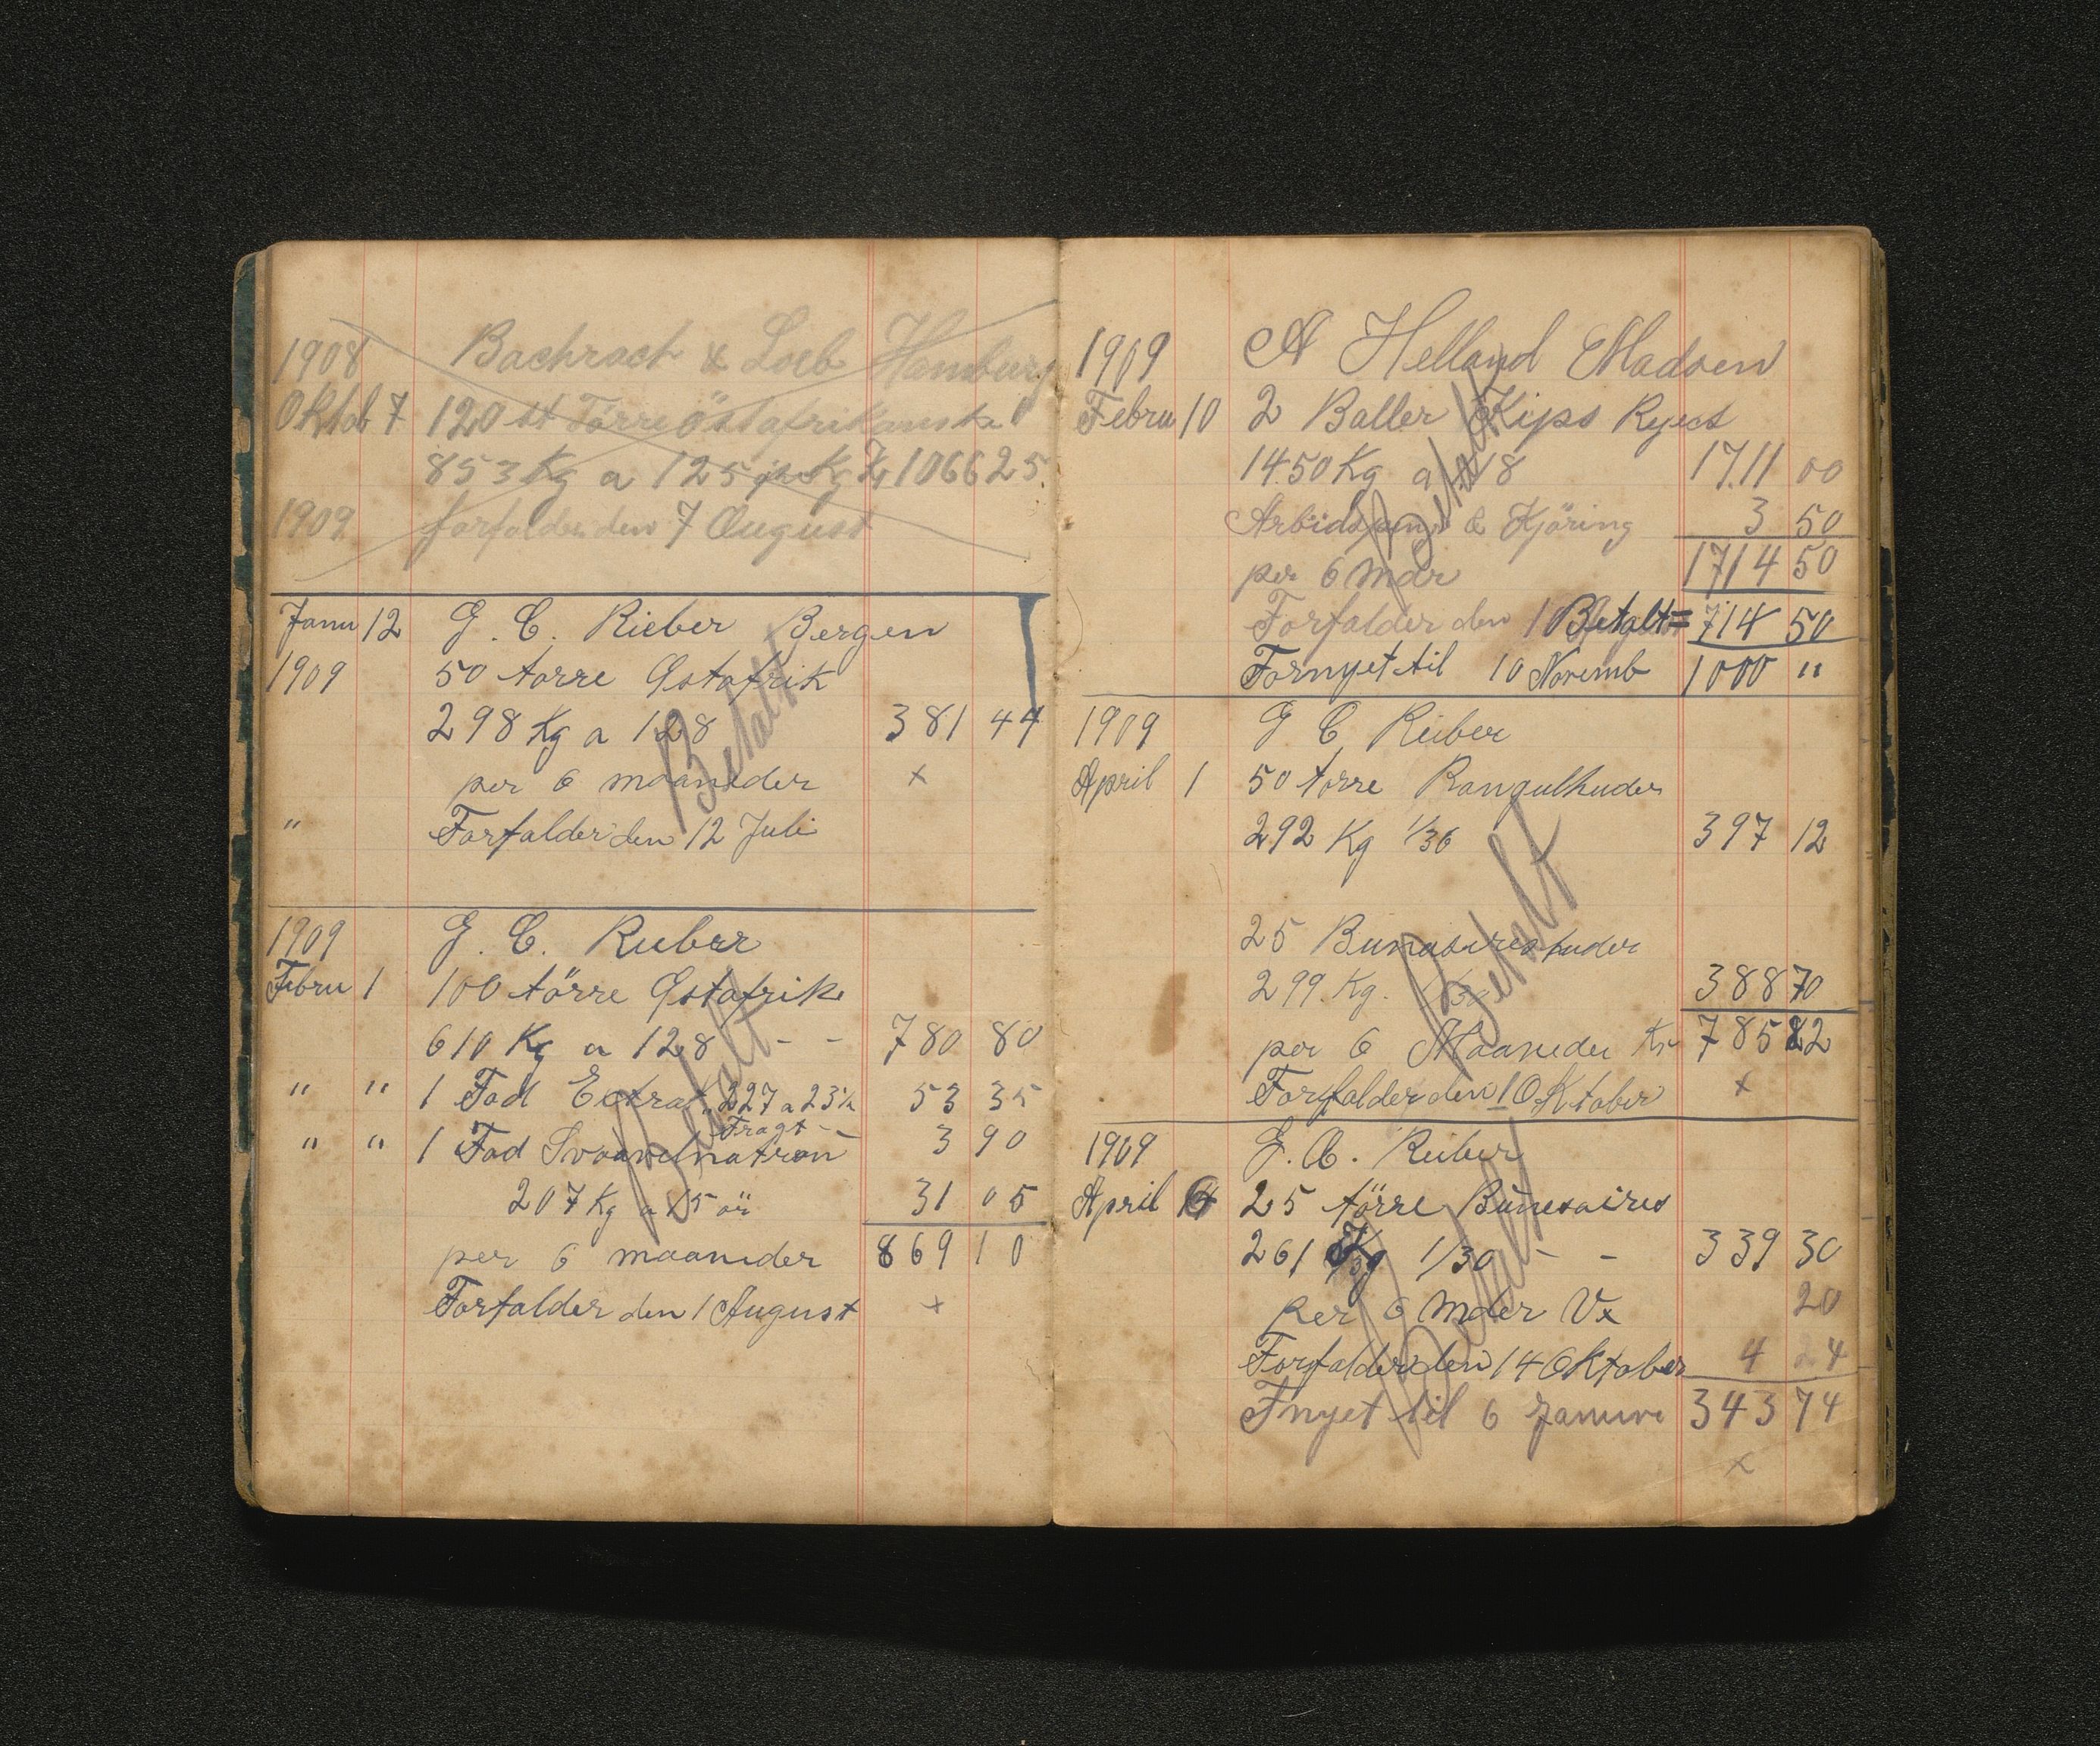 1908 Bachrach & Loeb Hamburg
Oktob 7 120 st Törre östafrikanske
853 Kg a 125 pr Kg Kr 1066 25
1909 forfalder den 7 August
Janu 12 G. C. Rieber Bergen
1909 50 törre Østafrik
298 Kg a 128 381 44
per 6 maaneder x
" Forfalder den 12 Juli
Betalt
1909 G. C. Rieber
Febru 1 100 törre Østafrik
610 Kg a 128 - - 780 80
" " 1 Fad Extrat 227 a 23½ 53 35
Fragt - -
" " 1 Fad Svovelnatron 3 90
207 Kg a 15 ör 31 05
per 6 maaneder 869 10
Forfalder den 1 August x
Betalt
1909 A Helland Madsen
Febru 10 2 Baller Kips Reject
1450 Kg a 118 1711 00
Arbidspenge & Kjöring 3 50
per 6 Mdr 1714 50
Forfalder den 10 Betalt = 714 50
Fornyet til 10 Novemb 1000 "
Betalt
1909 G C Rieber
April 1 50 törre Rangulhuder
292 Kg 1/36 397 12
25 Bunosireshuder
299 Kg. 1/30 388 70
per 6 Maaneder Kr 785 82
Forfalder den 1 Oktober x
Betalt
1909 G. C. Rieber
April 14 25 törre Bunesaires
261 Kg 1/30 - - 339 30
per 6 Mdr Vx 20
Forfalder den 14 Oktober 4 24
Fnyet til 6 Januar 343 74
x
Betalt